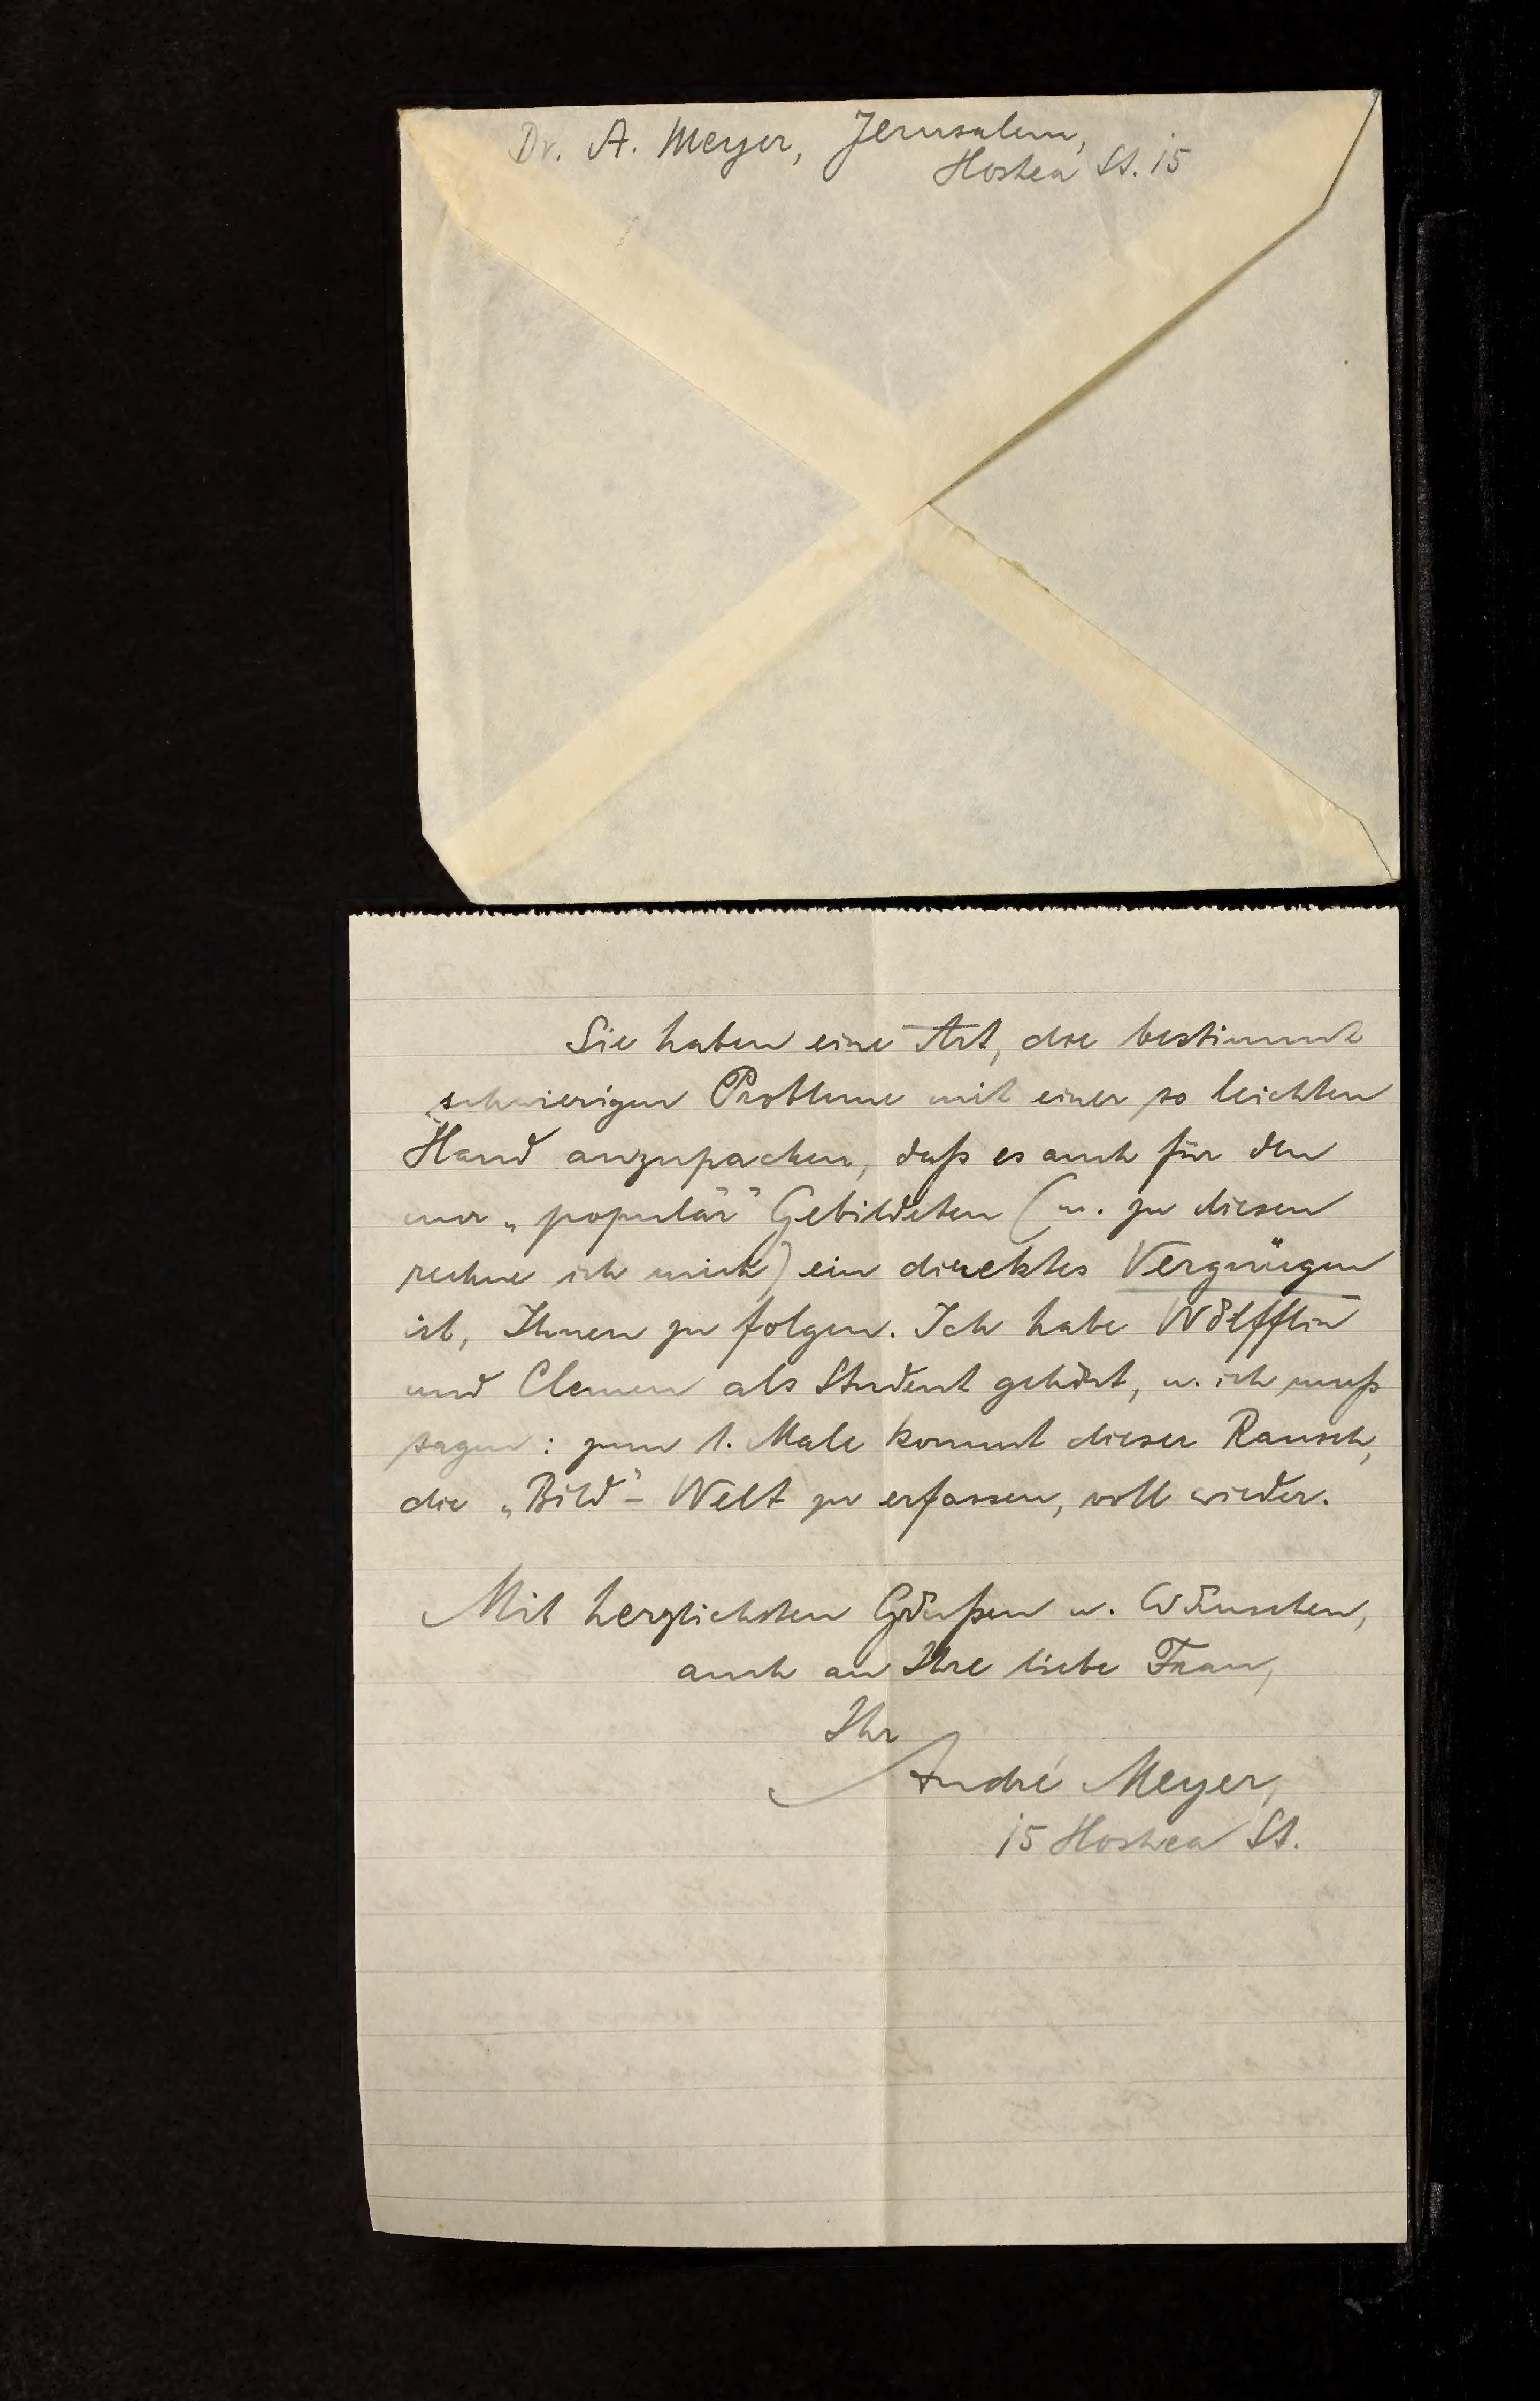 Dr. A. Meyer, Jerusalem,
Hoshea St. 15
Sie haben eine Art, die bestimmt
schwierigen Probleme mit einer so leichten
Hand anzupacken, daß es auch für den
nur „populär" Gebildeten (u. zu diesen
rechne ich mich) ein direktes Vergnügen
ist, Ihnen zu folgen. Ich habe Wölfflin
und Clemen als Student gehört, u. ich muß
sagen: zum 1. Male kommt dieser Rausch,
die „Bild"- Welt zu erfassen, voll wieder.
Mit herzlichsten Grüßen u. Wünschen,
auch an Ihre liebe Frau,
Ihr
André Meyer,
15 Hoshea St.